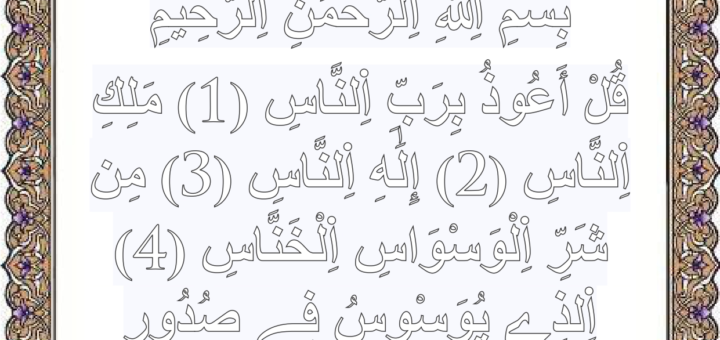 بِسْمِ اِ۬للَّهِ اِ۬لرَّحْمَٰنِ اِ۬لرَّحِيمِ
قُلْ أَعُوذُ بِرَبِّ اِ۬لنَّاسِ (1) مَلِكِ
اِ۬لنَّاسِ (2) إِلَٰهِ اِ۬لنَّاسِ (3) مِن
شَرِّ اِ۬لْوَسْوَاسِ اِ۬لْخَنَّاسِ (4)
اِ۬لذِے يُوَسْوِسُ فِے صُدُورِ